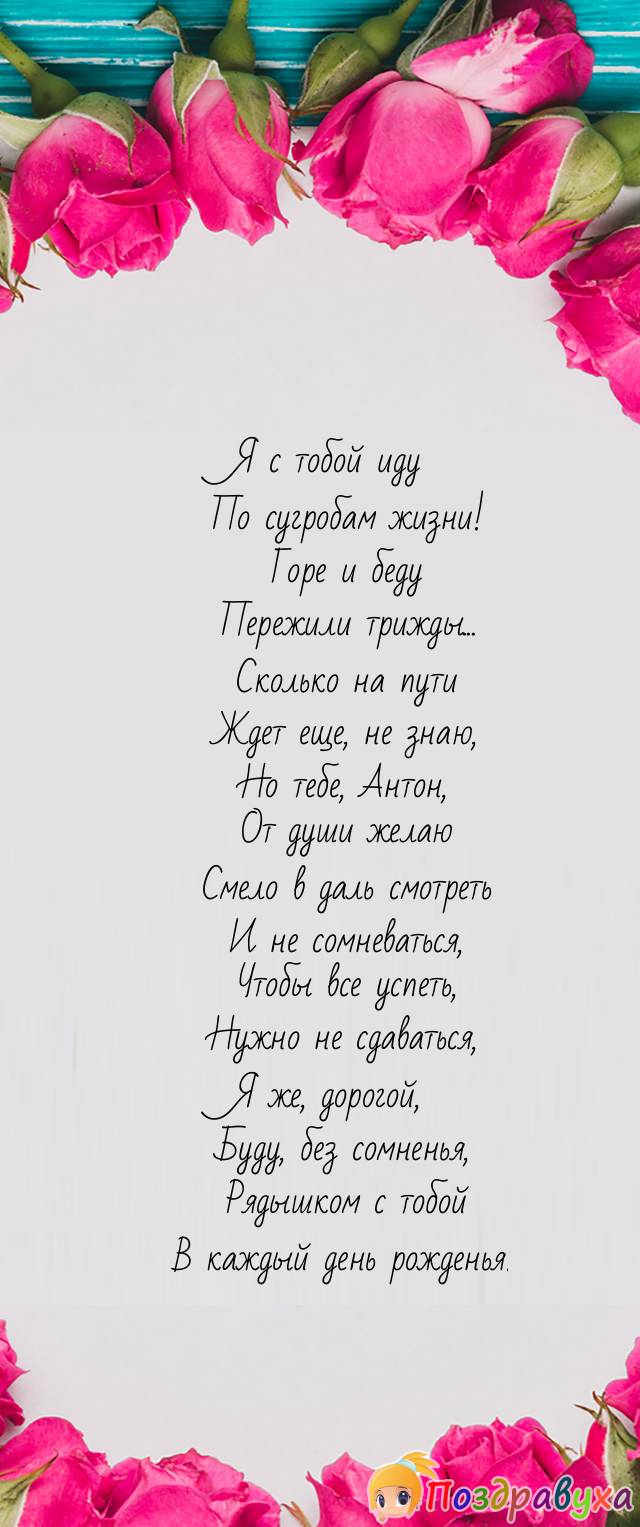 Я с тобой иду
По сугробам жизни!
Горе и беду
Пережили трижды...
Сколько на пути
Ждет еще, не знаю,
Но тебе, Антон,
От души желаю
Смело в даль смотреть
И не сомневаться,
Чтобы все успеть,
Нужно не сдаваться,
Я же, дорогой,
Буду, без сомненья,
Рядышком с тобой
В каждый день рожденья.
Поздравуха